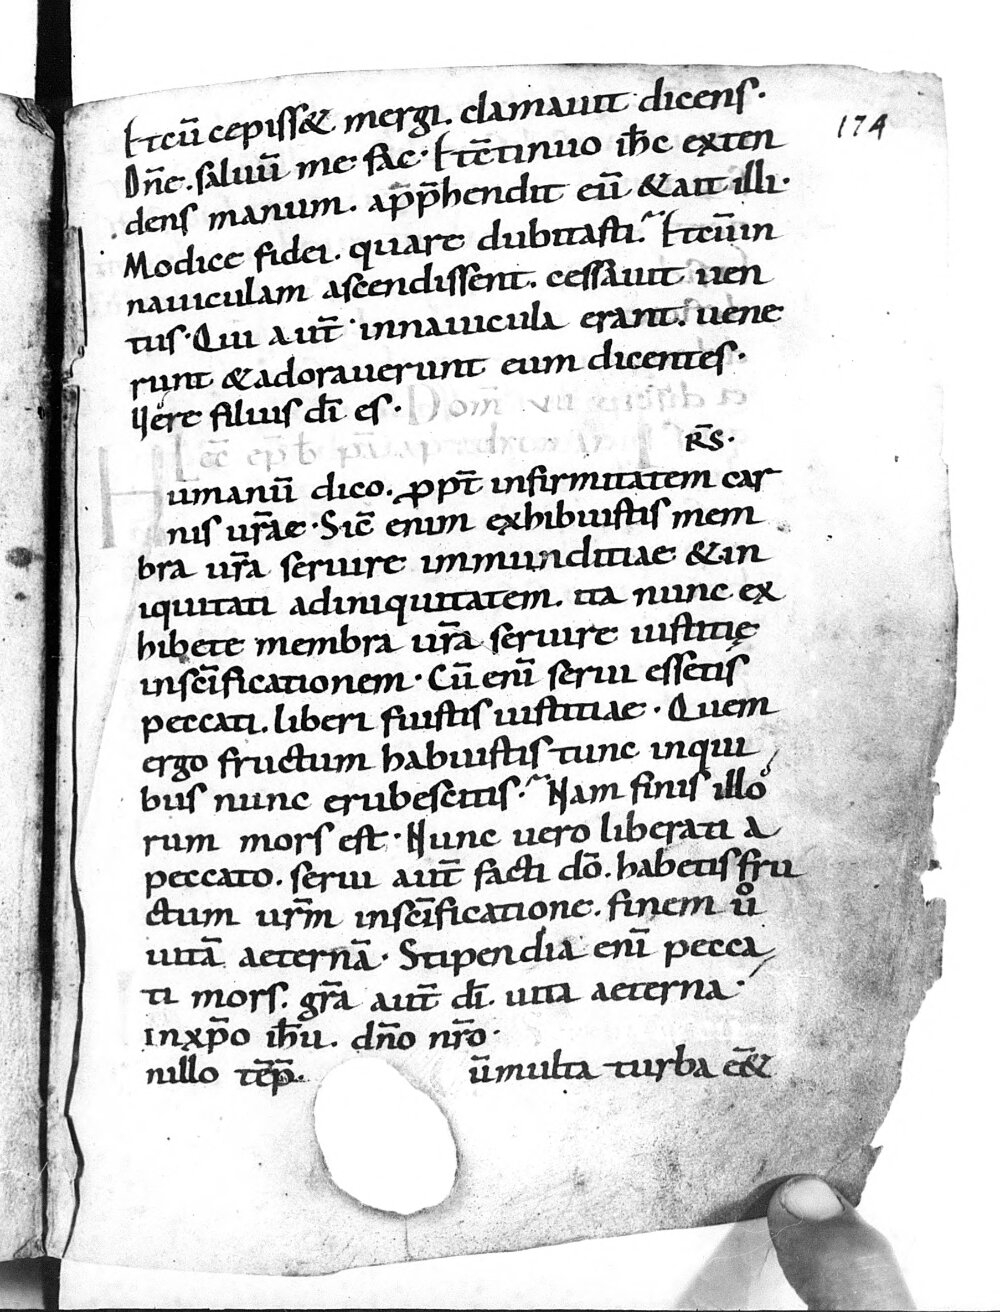 174
Et cū cepiss& mergi. clamauit dicens.
Dn̄e. saluū me fac. Et c̄tinuo ih̄c exten
dens manum. app̄hendit eū & ait illi.
Modice fidei. quare dubitasti. Et cū in
nauiculam ascendissent. cessauit uen
tus. Qui aut̄ in nauicula erant. uene
runt & adorauerunt eum dicentes.
Uere filius dī es.
Dom̄ vii
R̄S.
Humanū dico. ꝓpt̄ infirmitatem car
nis ur̄ae. Sic̄ enim exhibuistis mem
bra ur̄a seruire immunditiae & in
iquitati ad iniquitatem. ita nunc ex
hibete membra ur̄a seruire iustitię
in sc̄ificationem. Cū enī serui essetis
peccati. liberi fuistis iustitiae. Quem
ergo fructum habuistis tunc in qui
bus nunc erubescitis. Nam finis illo
rum mors est. Nunc uero liberati a
peccato. serui aut̄ facti dō. habetis fru
ctum ur̄m in sc̄ificatione. finem ů
uitā aeternā. Stipendia enī pecca
ti mors. gr̄a aut̄ dī. uita aeterna.
in xp̄o ih̄u. dn̄o nr̄o.
n illo tēp̄. ū multa turba c̄&